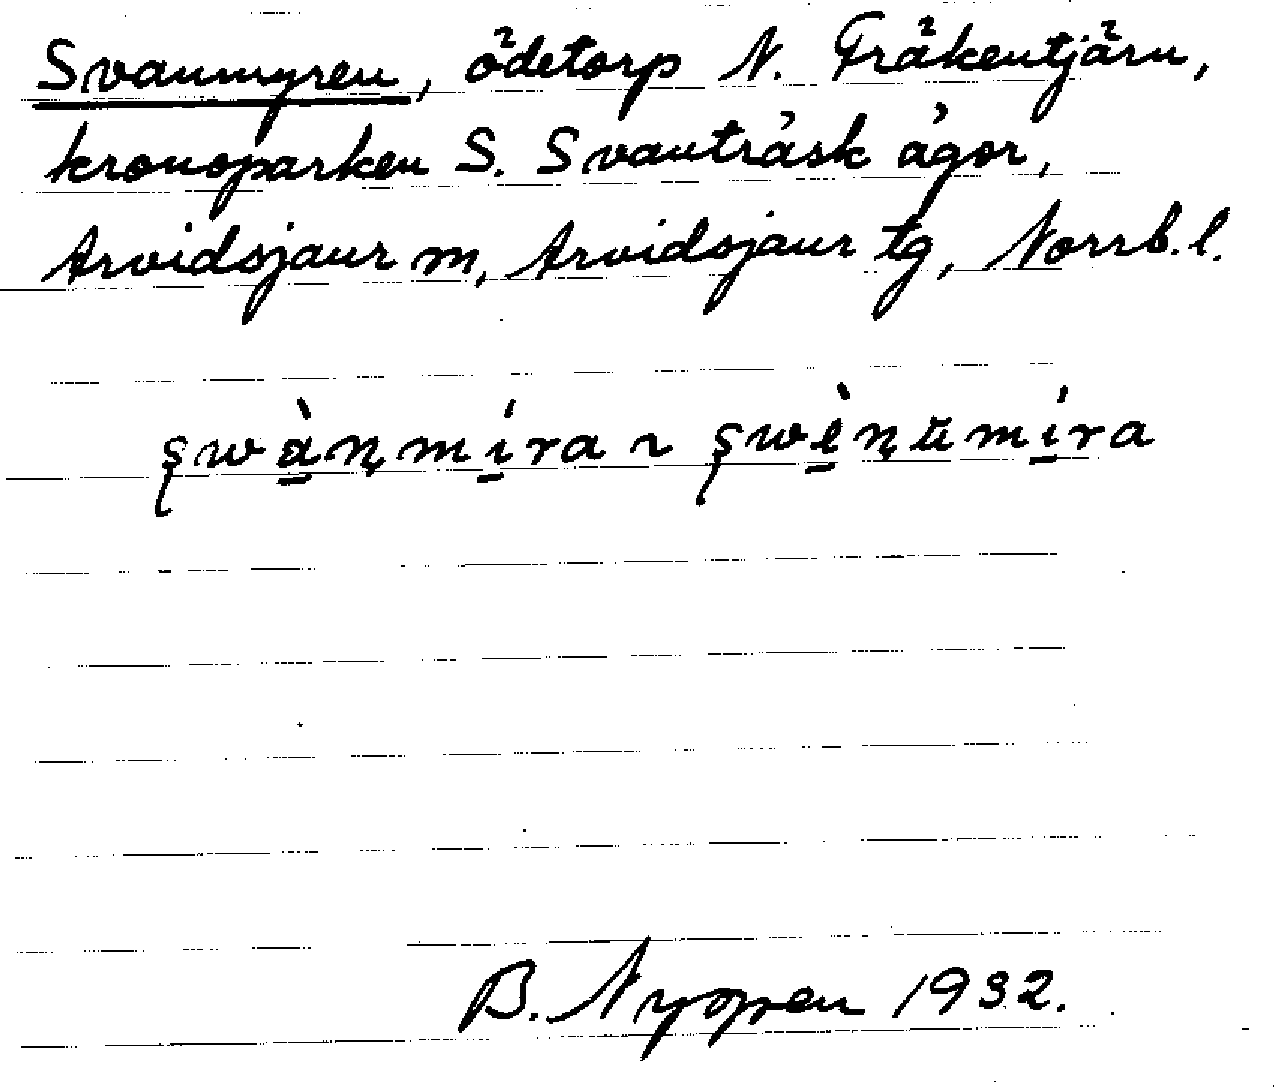 Svanmyren, ödetorp N. Fräkentjärn,
kronoparken S. Svanträsk ägor,
Arvidsjaur sn, Arvidsjaur tg, Norrb. l.
şwànmíra ~ şwènʉmíra
B. Nyopen 1932.